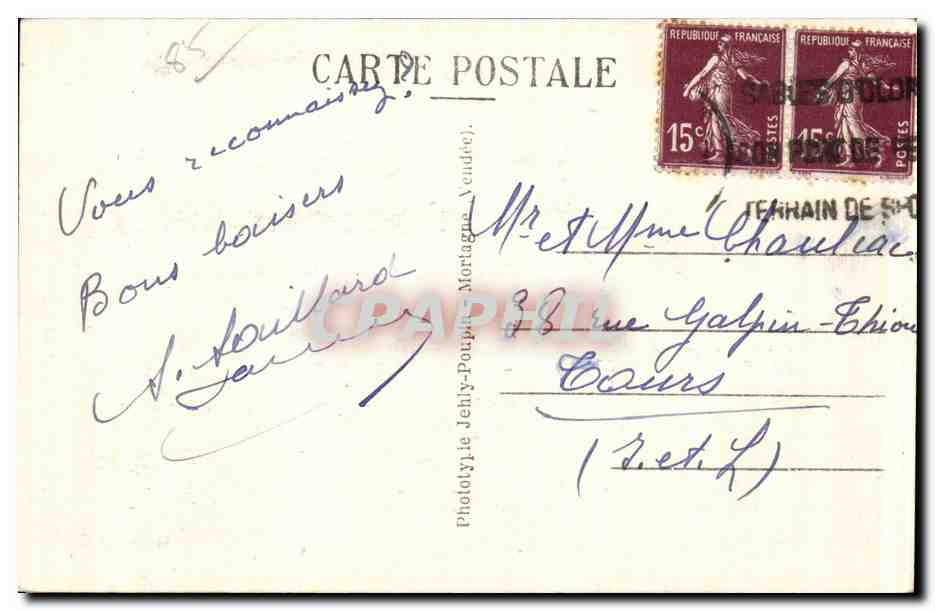 85
CARTE POSTALE
REPUBLIQUE FRANÇAISE
15c
POSTES
REPUBLIQUE FRANÇAISE
15c
POSTES
SABLES D'OLON
SON DE
TERRAIN DE SPO
Vous reconnaissez?
Bons baisers
A. Saillard
Phototypie Jehly-Poupin, Mortagne (Vendée).
Mr et Mme Chauliac
38 rue Galpin-Thiou
Tours
(I. et. L)
CPAPHIL